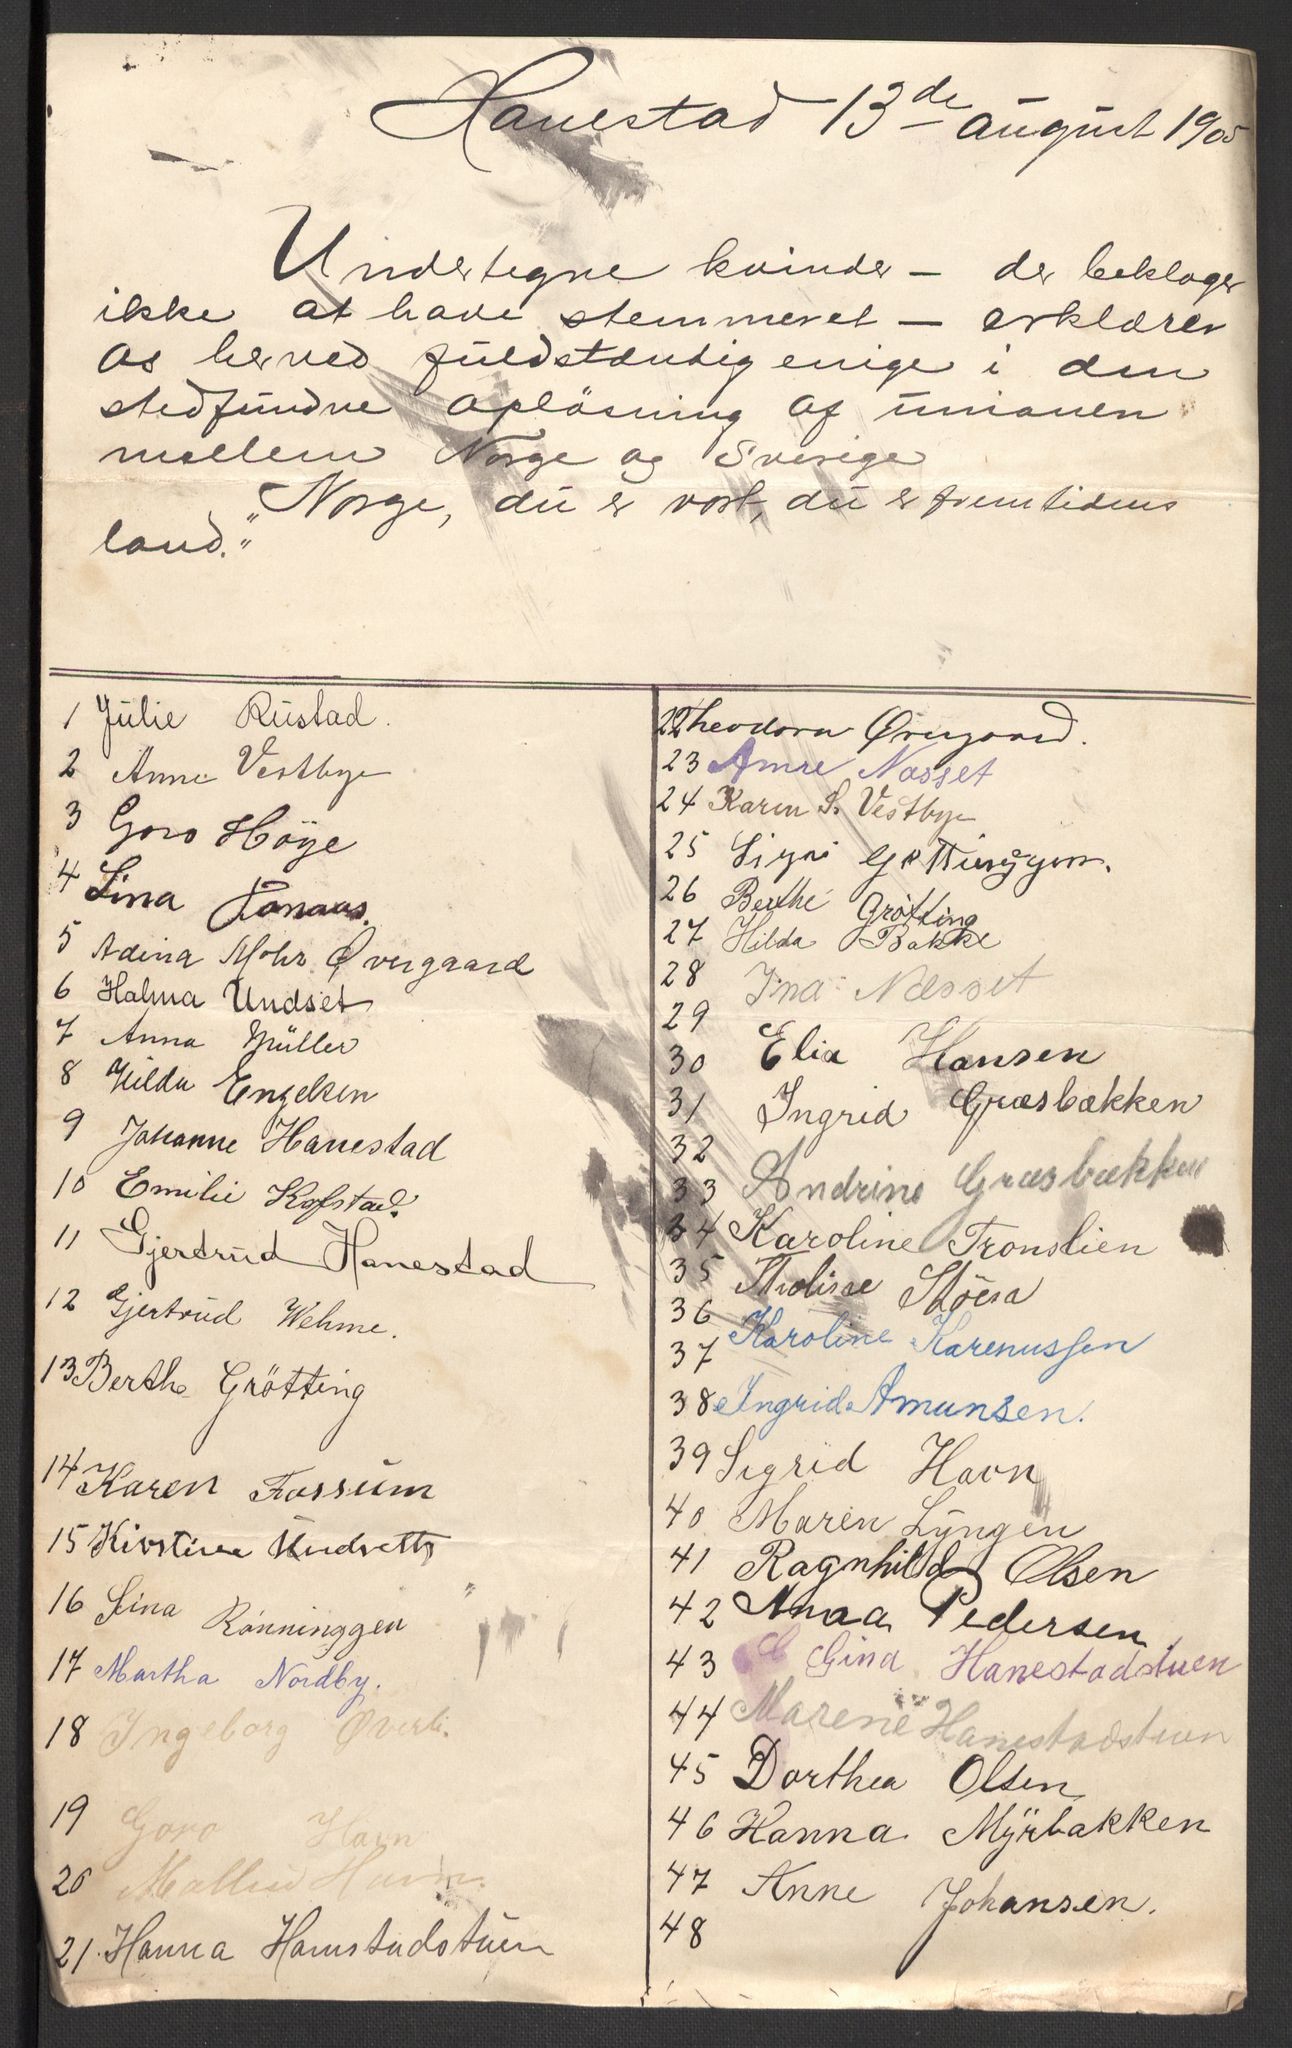 Hanestad 13de august 1905
Undertegne kvinder – der beklager
ikke at have stemmeret – erklærer
os herved fuldstændig enige i den
stedfundne opløsning af unionen
mellem Norge og Sverige
"Norge, du er vort, du er fremtidens
land."
1 Julie Rustad.
2 Anne Vestbye
3 Goro Höye
4 Lina
5 Adina Mohr Øvergaard
6 Halma Undset
7 Anna Müller
8 Hilda Engelsen
9 Johanne Hanestad
10 Emilie Kofstad.
11 Gjertrud Hanestad
12 Gjertrud Wehme.
13 Berthe Grötting
14 Karen Fossum
15 Kirstine Undseth
16 Lina Rönninggen
17 Martha Nordby.
18 Ingeborg Øverli.
19 Goro Havn
20 Havn.
21. Hanna Hanestadstuen
22 Theodora Øvergaard.
23 Amre Næsset
24 Karen S. Vestbye
25 Signe
26 Berthe Grötting
27 Hilda Bakke
28 Ina Næsset
29
30 Elia Hansen
31 Ingrid Græsbækken
32
33 Andrine Græsbækken
34 Karoline Tronslien
35 Støen
36
37 Karoline Karenussen
38 Ingrid Amunsen.
39 Sigrid Havn
40 Maren Lyngen
41 Ragnhild Olsen
42 Anna Pedersen
43 Gina Hanestadstuen
44 Marene Hanestadstuen
45 Dorthea Olsen
46 Hanna Myrbakken
47 Anne Johansen.
48